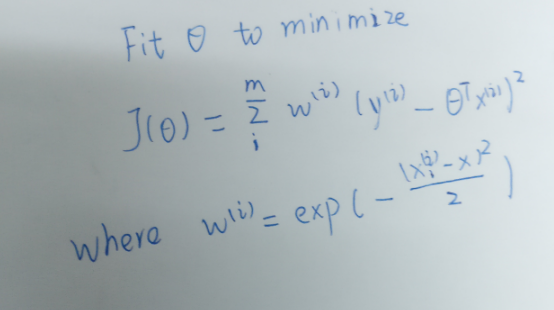 Fit θ to minimize
J(θ) = Σ_i^m w^(i) (y^(i) - θ^T x^(i))^2
where w^(i) = exp(- (x_i^(i) - x)^2 / 2)